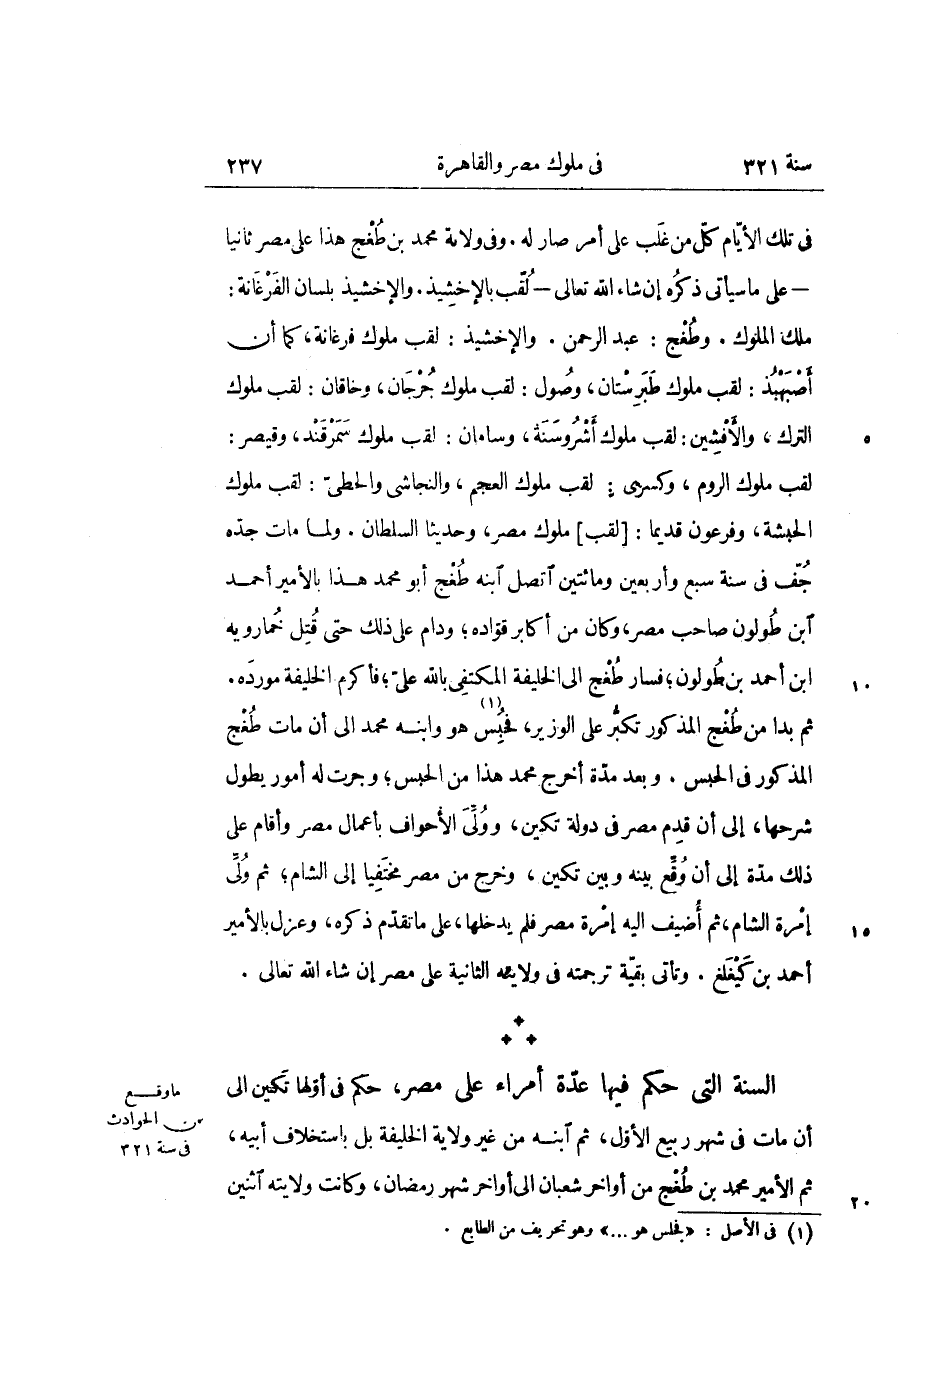 سنة ٣٢١ فى ملوك مصر والقاهرة ٢٣٧
فى تلك الأيّام كلّ من غَلَب على أمر صار له . وفى ولاية محمد بن طُغْج هذا على مصر ثانيا
— على ما سيأتى ذكرُه إن شاء الله تعالى — لُقّب بالإخشيذ . والإخشيذ بلسان الفَرْغانة :
ملك الملوك . وطُغْج : عبد الرحمن . والإخشيذ : لقب ملوك فرغانة ، كما أن
أَصْبَهْبُذ : لقب ملوك طَبَرِسْتان ، وصُول : لقب ملوك جُرْجَان ، وخاقان : لقب ملوك
الترك ، والأَفْشِين : لقب ملوك أُشْرُوسَنَة ، وسامان : لقب ملوك سَمَرْقَنْد ، وقيصر : ٥
لقب ملوك الروم ، وكسرى : لقب ملوك العجم ، والنجاشى والحطىّ : لقب ملوك
الحبشة ، وفرعون قديما : [لقب] ملوك مصر ، وحديثا السلطان . ولما مات جدّه
جُفّ فى سنة سبع وأربعين ومائتين آتصل آبنه طُغْج أبو محمد هذا بالأمير أحمد
آبن طُولون صاحب مصر ، وكان من أكابر قوّاده ؛ ودام على ذلك حتى قُتِل خُمارويه
ابن أحمد بن طولون ؛ فسار طُغْج الى الخليفة المكتفِى بالله علىّ ؛ فأكرم الخليفة مورده . ١٠
ثم بدا من طُغْج المذكور تكبُّر على الوزير ، فحُبِس (١) هو وابنه محمد الى أن مات طُغْج
المذكور فى الحبس . وبعد مدّة أخرج محمد هذا من الحبس ؛ وجرت له أمور يطول
شرحها ، إلى أن قدِم مصر فى دولة تكين ، ووُلِّىَ الأحواف بأعمال مصر وأقام على
ذلك مدّة إلى أن وُقِّع بينه وبين تكين ، وخرج من مصر مختفِيا إلى الشام ؛ ثم وُلِّىَ
إمْرة الشام ، ثم أُضيف اليه إمْرة مصر فلم يدخلها ، على ما تقدّم ذكره ، وعزل بالأمير ١٥
أحمد بن كَيْغَلَغ . وتأتى بقيّة ترجمته فى ولايته الثانية على مصر إن شاء الله تعالى .
السنة التى حكم فيها عدّة أمراء على مصر ، حكم فى أوّلها تَكين الى
أن مات فى شهر ربيع الأوّل ، ثم آبنه من غير ولاية الخليفة بل باستخلاف أبيه ،
ثم الأمير محمد بن طُغْج من أواخر شعبان الى أواخر شهر رمضان ، وكانت ولايته آثنين ٢٠
ما وقع
من الحوادث
فى سنة ٣٢١
(١) فى الأصل : «فجلس هو ...» وهو تحريف من الطابع .